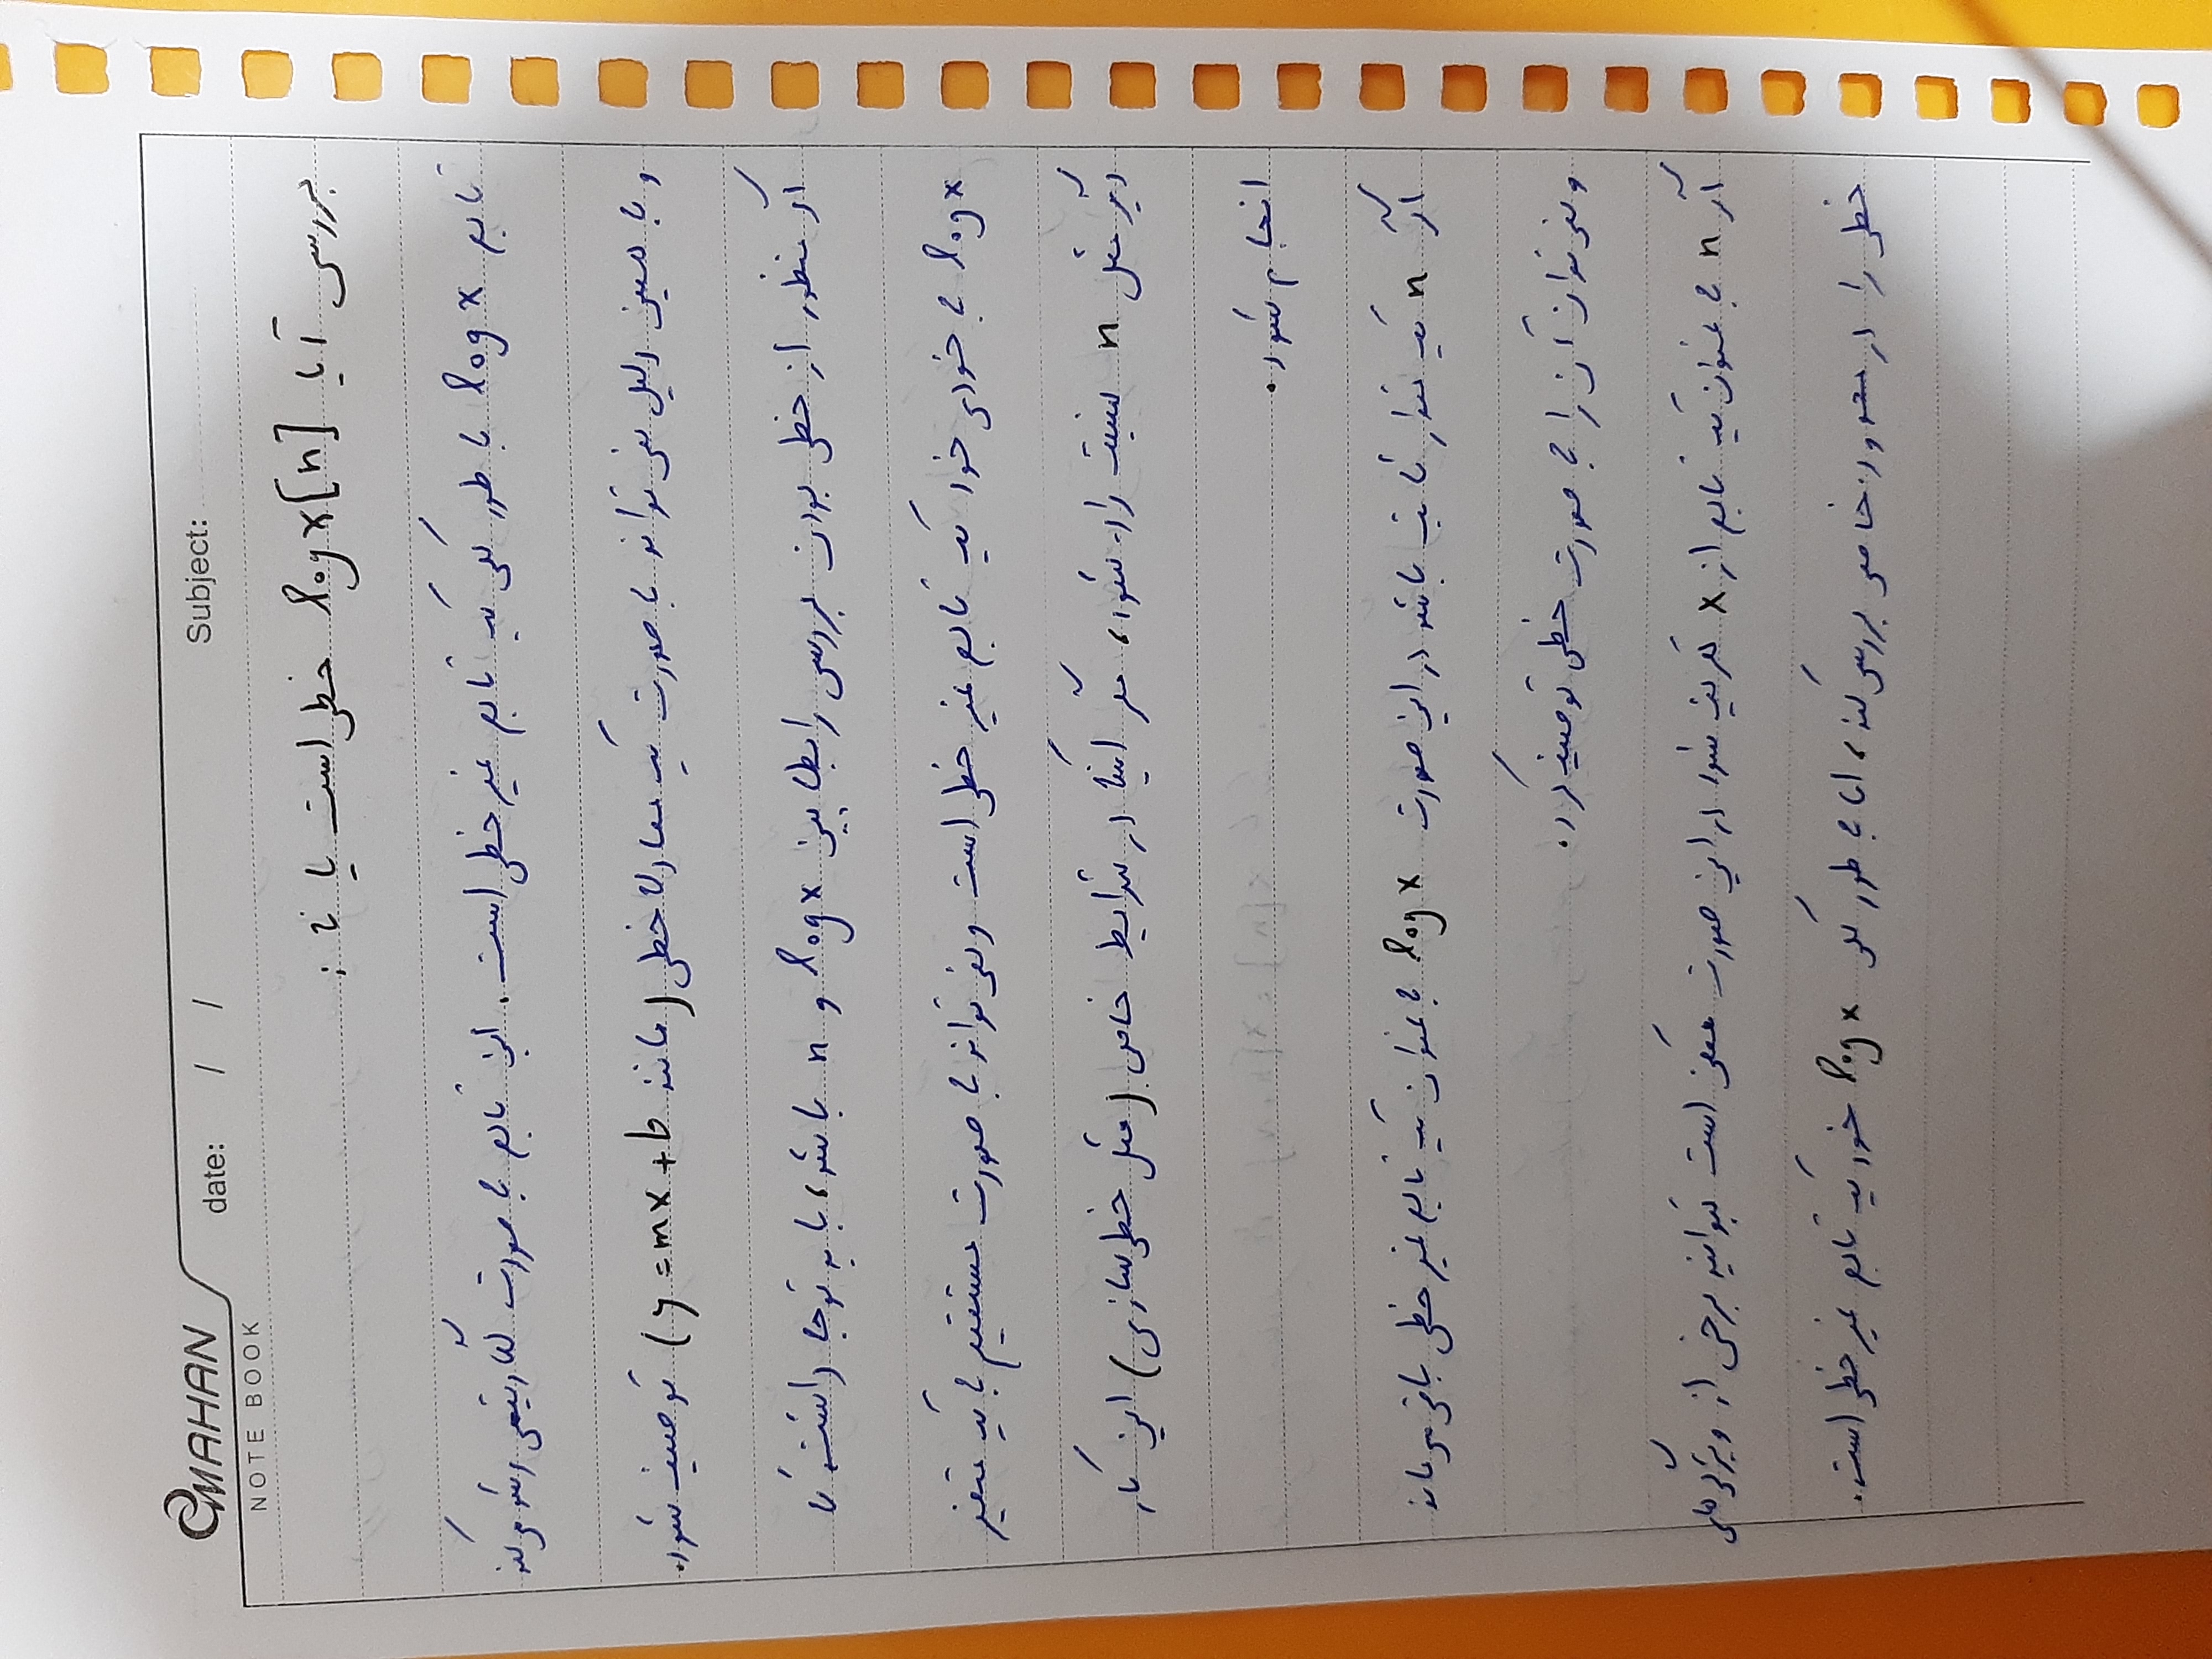 MAHAN
NOTE BOOK
date: / /
Subject:
بررسی آیا log x[n] خطی است یا نه :
تابع log x به طور کلی یک تابع غیر خطی است. این تابع به صورت لگاریتمی رشد می‌کند
و به همین دلیل نمی‌تواند به صورت یک معادله خطی (مانند y = mx + b) توصیف شود.
اگر منظور از خطی بودن بررسی رابطه بین log x و n باشد، باید توجه داشت که
log x به خودی خود یک تابع غیر خطی است و نمی‌تواند به صورت مستقیم به یک متغیر
دیگر مثل n نسبت داده شود، مگر اینکه در شرایط خاص (مثل خطی‌سازی) این کار
انجام شود.
اگر n یک مقدار ثابت باشد در این صورت log x به عنوان یک تابع غیر خطی باقی می‌ماند
و نمی‌توان آن را به صورت خطی توصیف کرد.
اگر n به عنوان یک تابع از x تعریف شود در این صورت ممکن است بتوانید برخی از ویژگی‌های
خطی را در محدوده خاصی بررسی کنید، اما به طور کلی log x خود یک تابع غیر خطی است.